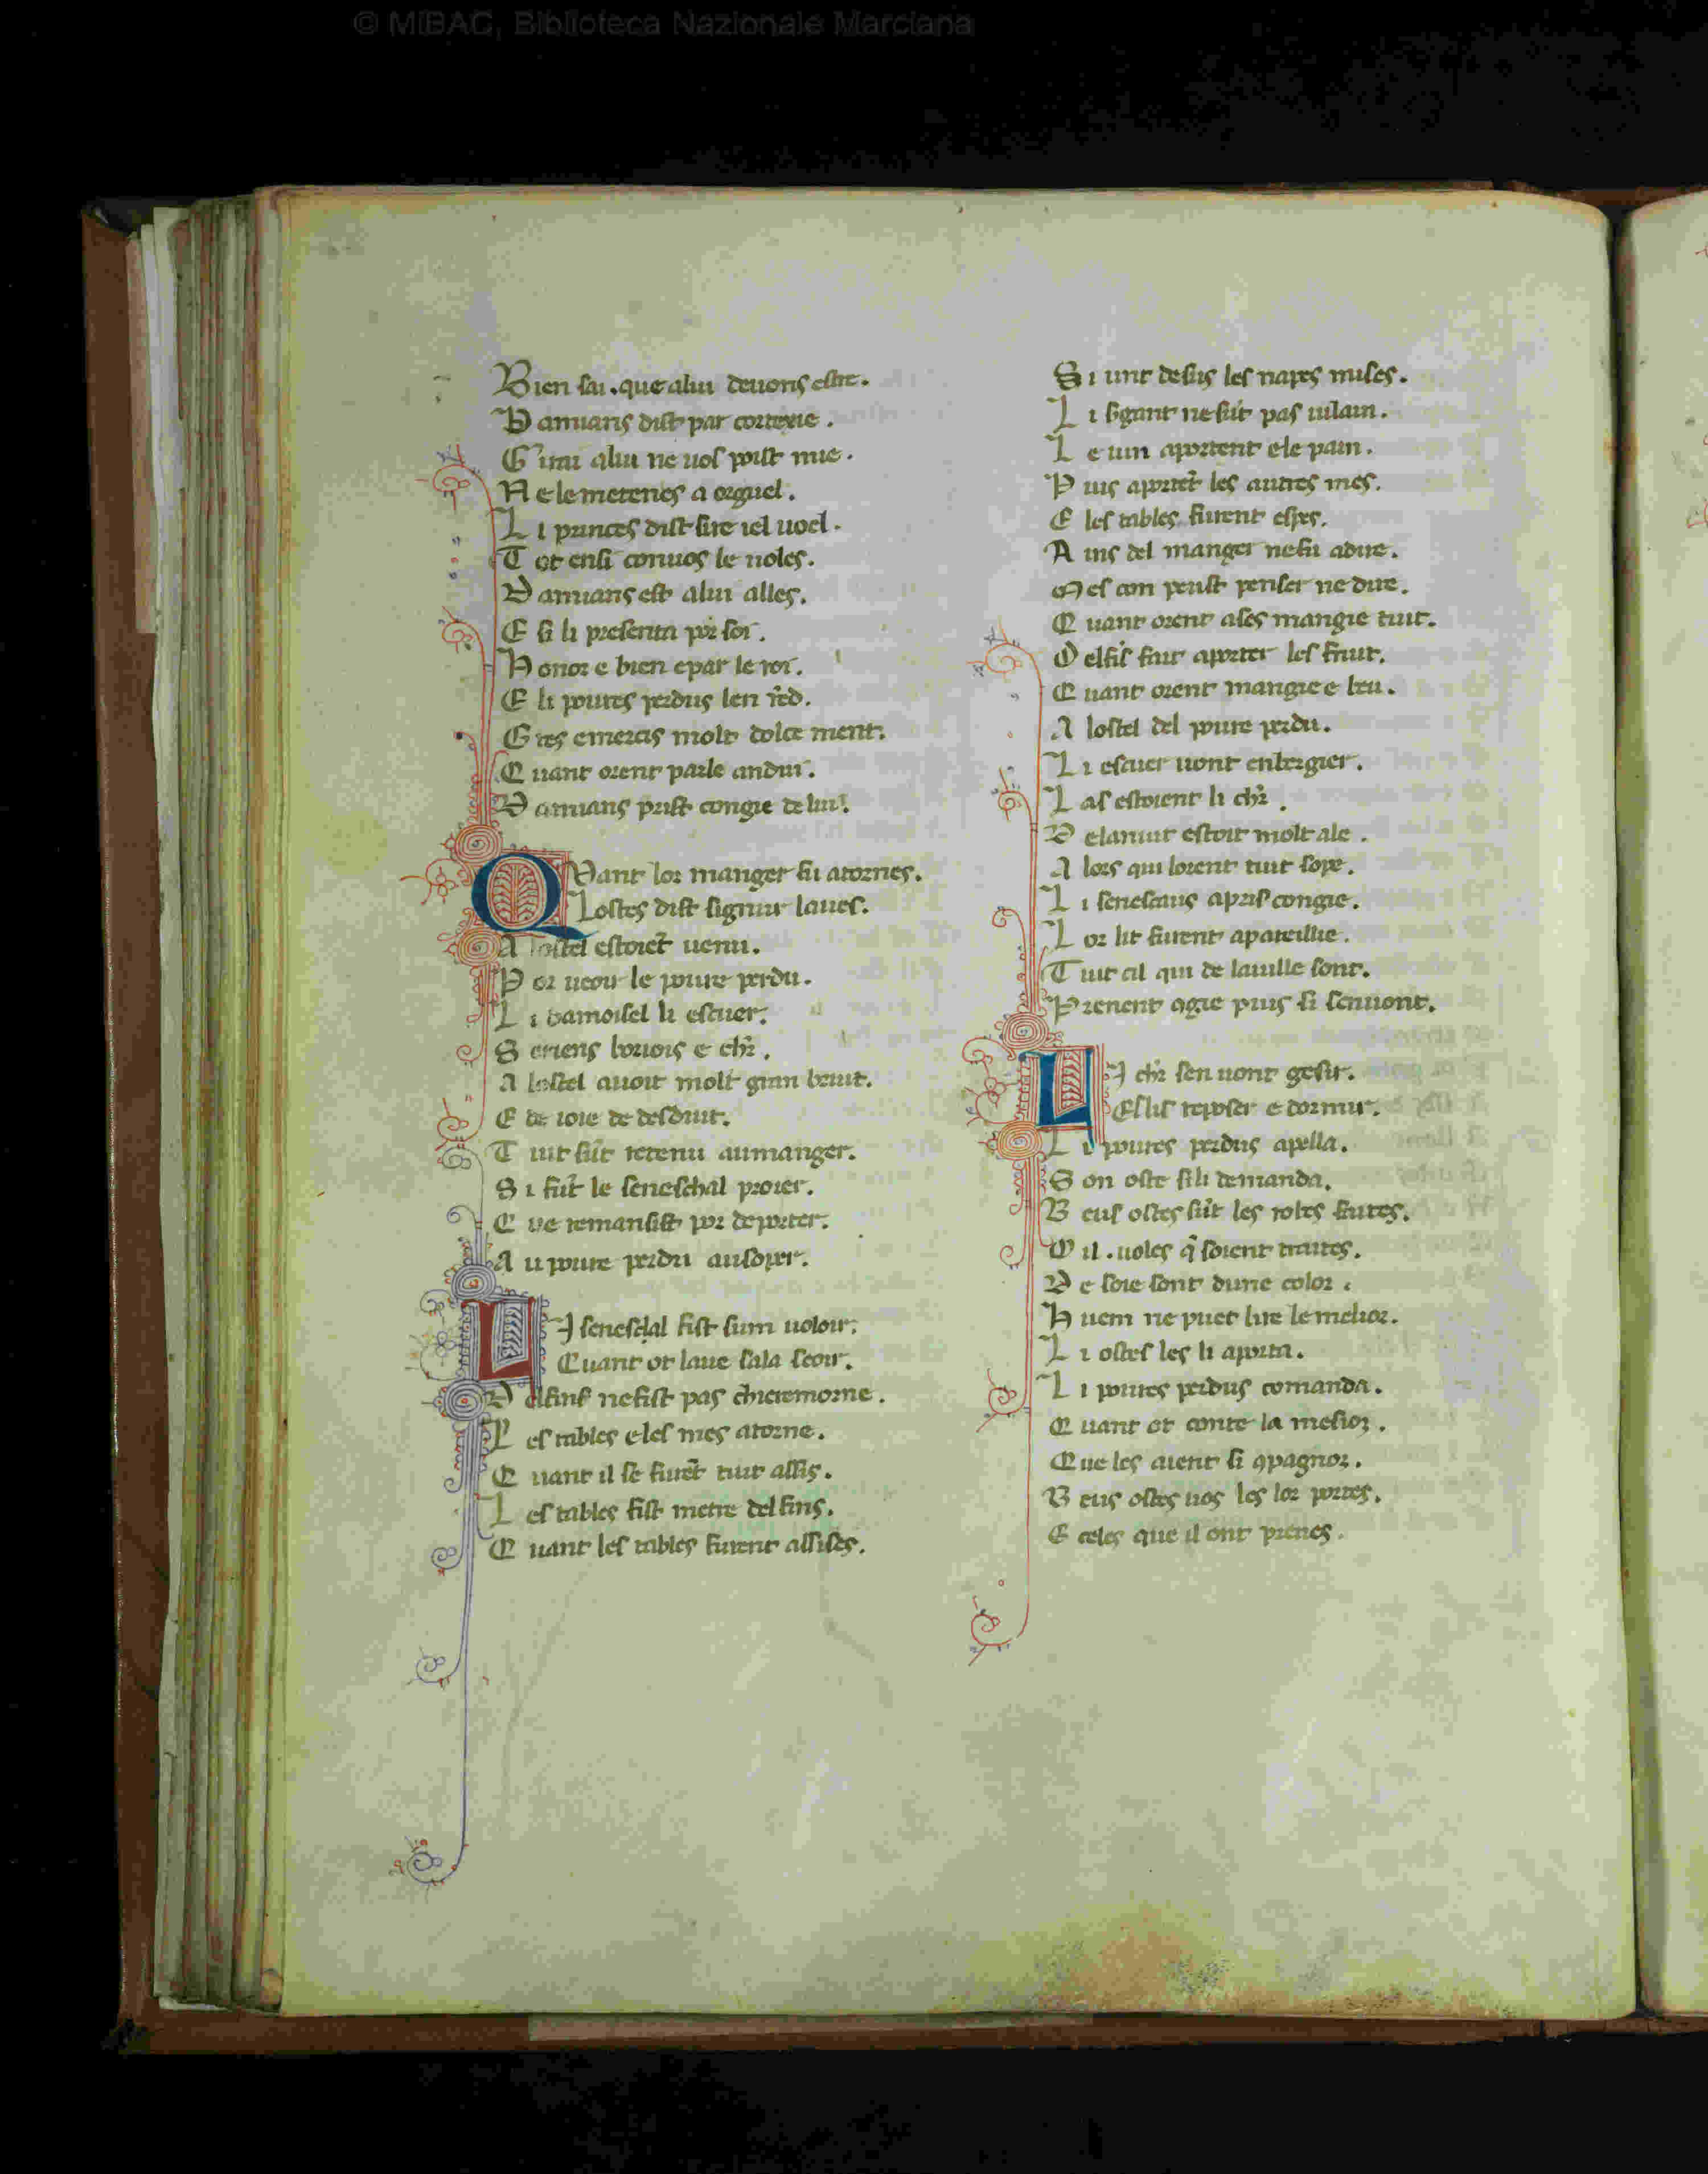 © MiBAC, Biblioteca Nazionale Marciana
Bien sai. que alui deuons estre.
Danuans dist par cortexie.
G irai alui ne uos poist mie.
N e le metenes a orguel.
L i princes dist sire iel uoel.
T ot ensi con uos le uoles.
Danuans est alui alles.
E si li presenta por soi.
H onor e bien e par le roi.
E li poures perdus len rẽd.
G res e mercis molt dolce ment.
Q uant orent parle andui.
Danuans prist congie de lui.
QVant lor manger fu atornes.
Lostes dist signiur laues.
A lostel estoiẽt uenu.
P or ueoir le poure perdu.
L i damoisel li escuer.
S eriens boriois e chr̃.
A lostel auoit molt gran bruit.
E de ioie de desduit.
T uit sũt retenu aumanger.
S i fũt le seneschal proier.
Q ue remansist por deporter.
A u poure perdu ausoper.
LI seneschal fist sum uoloir.
Quant ot laue sala seoir.
D elfins ne fist pas chiere morne.
L es tables e les mes atorne.
Q uant il se furẽt tuit assis.
L es tables fist metre delfins.
Q uant les tables furent assises.
S i unt desus les napes mises.
L i sgant ne sũt pas uilain.
L e uin aportent e le pain.
P uis aportẽt les autres mes.
E les tables furent espes.
A ins del manger ne fu adire.
Mes con peust penser ne dire.
Q uant orent ases mangie tuit.
D elfĩs fait aporter les fruit.
Q uant orent mangie e beu.
A lostel del poure perdu.
L i escuer uont enbergier.
L as estoient li chr̃.
D elanuit estoit molt ale.
A lors qui lorent tuit sope.
L i senescaus a pris congie.
L or lit furent apareillie.
T uit cil qui de lauille sont.
Prenent ꝯgie puis si senuont.
LI chr̃ sen uont gesir.
Es lis reposer e dormir.
L i poures perdus apella.
S on oste si li demanda.
B eus ostes sũt les robes faites.
O il. uoles q̃ soient traites.
D e soie sont dune color.
H uem ne puet lire le melior.
L i ostes les li aporta.
L i poures perdus comanda.
Q uant ot conte la mesior.
Que les aient si ꝯpagnor.
B eus ostes uos les lor portes.
E celes que il ont prenes.